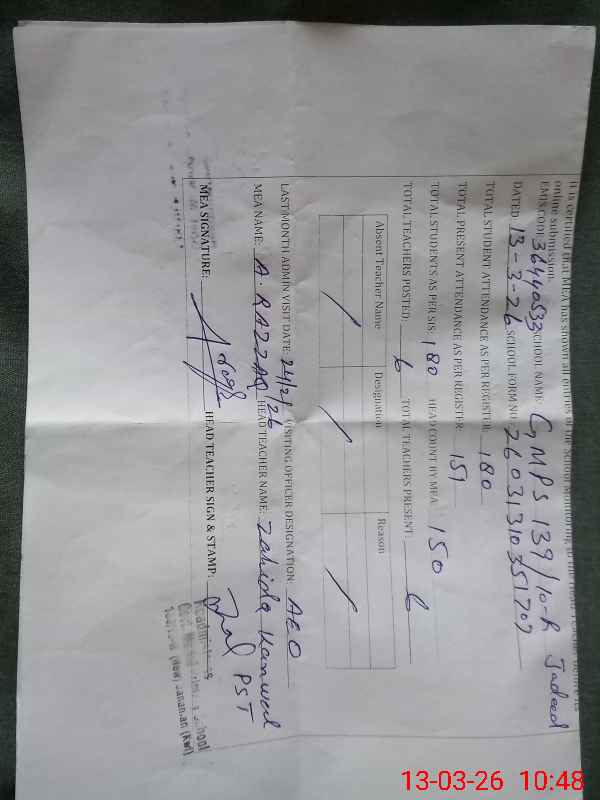 It is certified that MEA has shown all entries of the School Monitoring to the Head Teacher before its
online submission.
EMIS CODE: 36440533 SCHOOL NAME: GMPS 139/10-R Jadeed
DATED: 13-3-26 SCHOOL FORM NO: 2603131035170
TOTAL STUDENT ATTENDANCE AS PER REGISTER: 180
TOTAL PRESENT ATTENDANCE AS PER REGISTER: 151
TOTAL STUDENTS AS PER SIS: 180 HEAD COUNT BY MEA: 150
TOTAL TEACHERS POSTED: 6 TOTAL TEACHERS PRESENT: 6
Absent Teacher Name Designation Reason
LAST MONTH ADMIN VISIT DATE: 24/2/26 VISITING OFFICER DESIGNATION: AEO
MEA NAME: A. RAZZAQ HEAD TEACHER NAME: Zahida Kanwal
MEA SIGNATURE: HEAD TEACHER SIGN & STAMP: PST
School
Jahanian (Kwl)
13-03-26 10:48